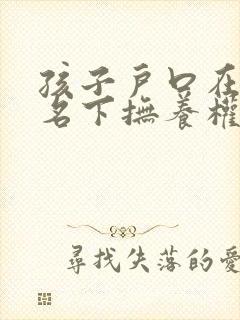 孩子戶口在
名下撫養權
尋找失落的愛